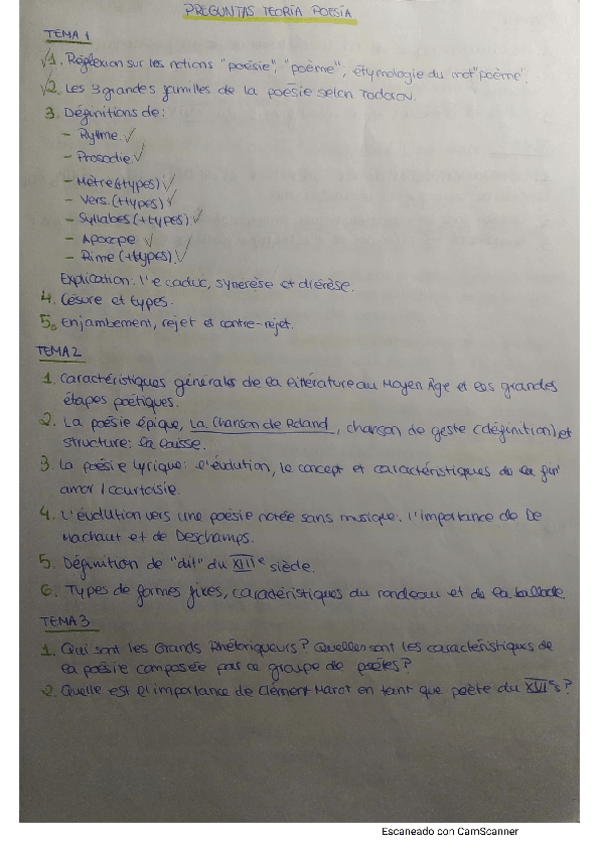 PREGUNTAS TEORÍA POESÍA
TEMA 1
1. Réflexion sur les notions "poésie", "poème", étymologie du mot "poème".
2. Les 3 grandes familles de la poésie selon Todorov.
3. Définitions de:
- Rytme. ✓
- Prosodie. ✓
- Mètre (+types) ✓
- Vers. (+types) ✓
- Syllabes (+types) ✓
- Apocope ✓
- Rime (+types). ✓
Explication: l'e caduc, synérèse et diérèse.
4. Césure et types.
5. Enjambement, rejet et contre-rejet.
TEMA 2
1. Caractéristiques générales de la littérature au Moyen Âge et les grandes
étapes poétiques.
2. La poésie épique, La Chanson de Roland, chanson de geste (définition) et
structure: la laisse.
3. La poésie lyrique: l'évolution, le concept et caractéristiques de la fin'
amor / courtoisie.
4. L'évolution vers une poésie notée sans musique: l'importance de De
Machaut et de Deschamps.
5. Définition de "dit" du XIIIe siècle.
6. Types de formes fixes, caractéristiques du rondeau et de la ballade.
TEMA 3
1. Qui sont les Grands Rhétoriqueurs? Quelles sont les caractéristiques de
la poésie composée par ce groupe de poètes?
2. Quelle est l'importance de Clément Marot en tant que poète du XVIe?
Escaneado con CamScanner